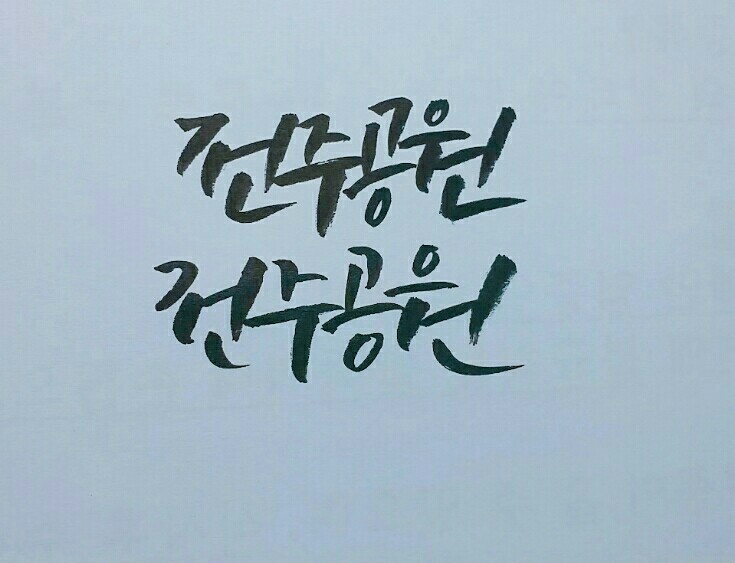 전주공원
전주공원